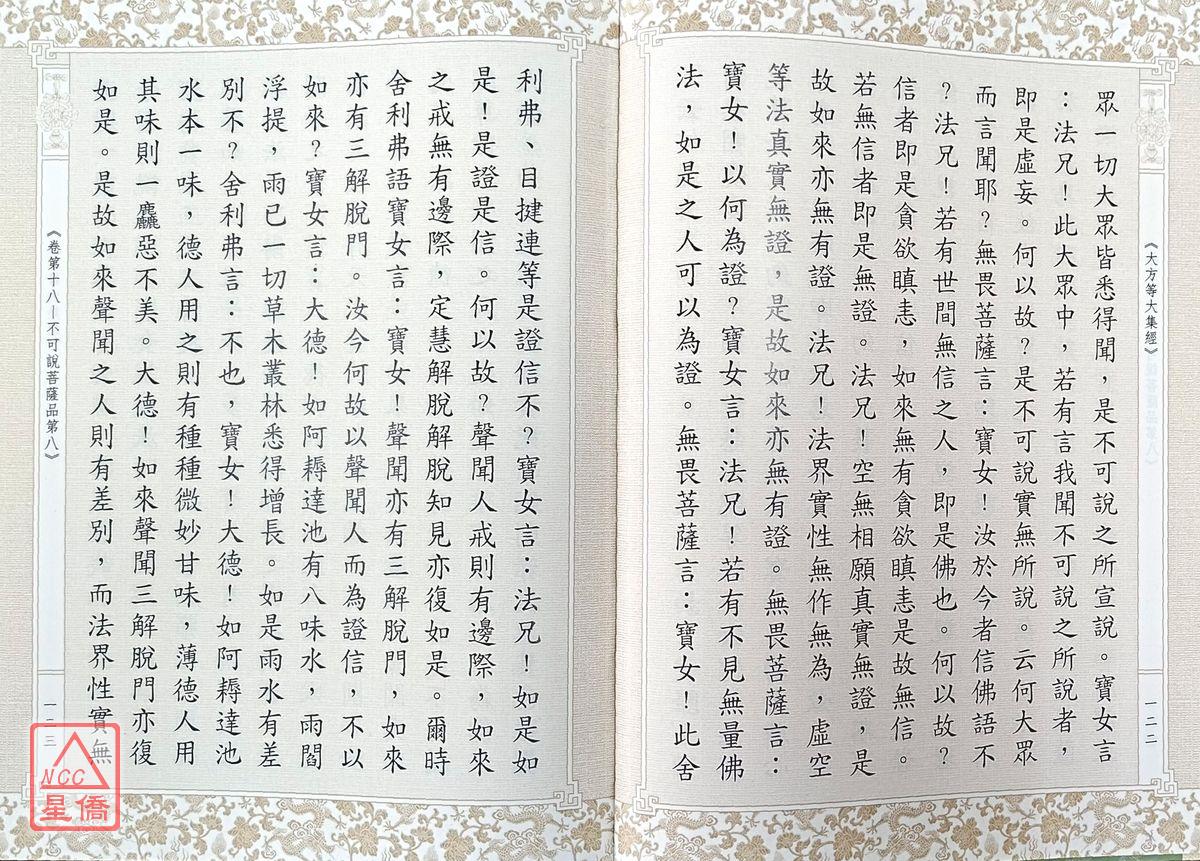 《大方等大集經》
眾一切大眾皆悉得聞，是不可說之所宣說。寶女言
：法兄！此大眾中，若有言我聞不可說之所說者，
即是虛妄。何以故？是不可說實無所說。云何大眾
而言聞耶？無畏菩薩言：寶女！汝於今者信佛語不
？法兄！若有世間無信之人，即是佛也。何以故？
信者即是貪欲瞋恚，如來無有貪欲瞋恚是故無信。
若無信者即是無證。法兄！空無相願真實無證，是
故如來亦無有證。法兄！法界實性無作無為，虛空
等法真實無證，是故如來亦無有證。無畏菩薩言：
寶女！以何為證？寶女言：法兄！若有不見無量佛
法，如是之人可以為證。無畏菩薩言：寶女！此舍
一二二
利弗、目揵連等是證信不？寶女言：法兄！如是如
是！是證是信。何以故？聲聞人戒則有邊際，如來
之戒無有邊際，定慧解脫解脫知見亦復如是。爾時
舍利弗語寶女言：寶女！聲聞亦有三解脫門，如來
亦有三解脫門。汝今何故以聲聞人而為證信，不以
如來？寶女言：大德！如阿耨達池有八味水，雨閻
浮提，雨已一切草木叢林悉得增長。如是雨水有差
別不？舍利弗言：不也，寶女！大德！如阿耨達池
水本一味，德人用之則有種種微妙甘味，薄德人用
其味則一麤惡不美。大德！如來聲聞三解脫門亦復
如是。是故如來聲聞之人則有差別，而法界性實無
《卷第十八－不可說菩薩品第八》
一二三
NCC
星僑